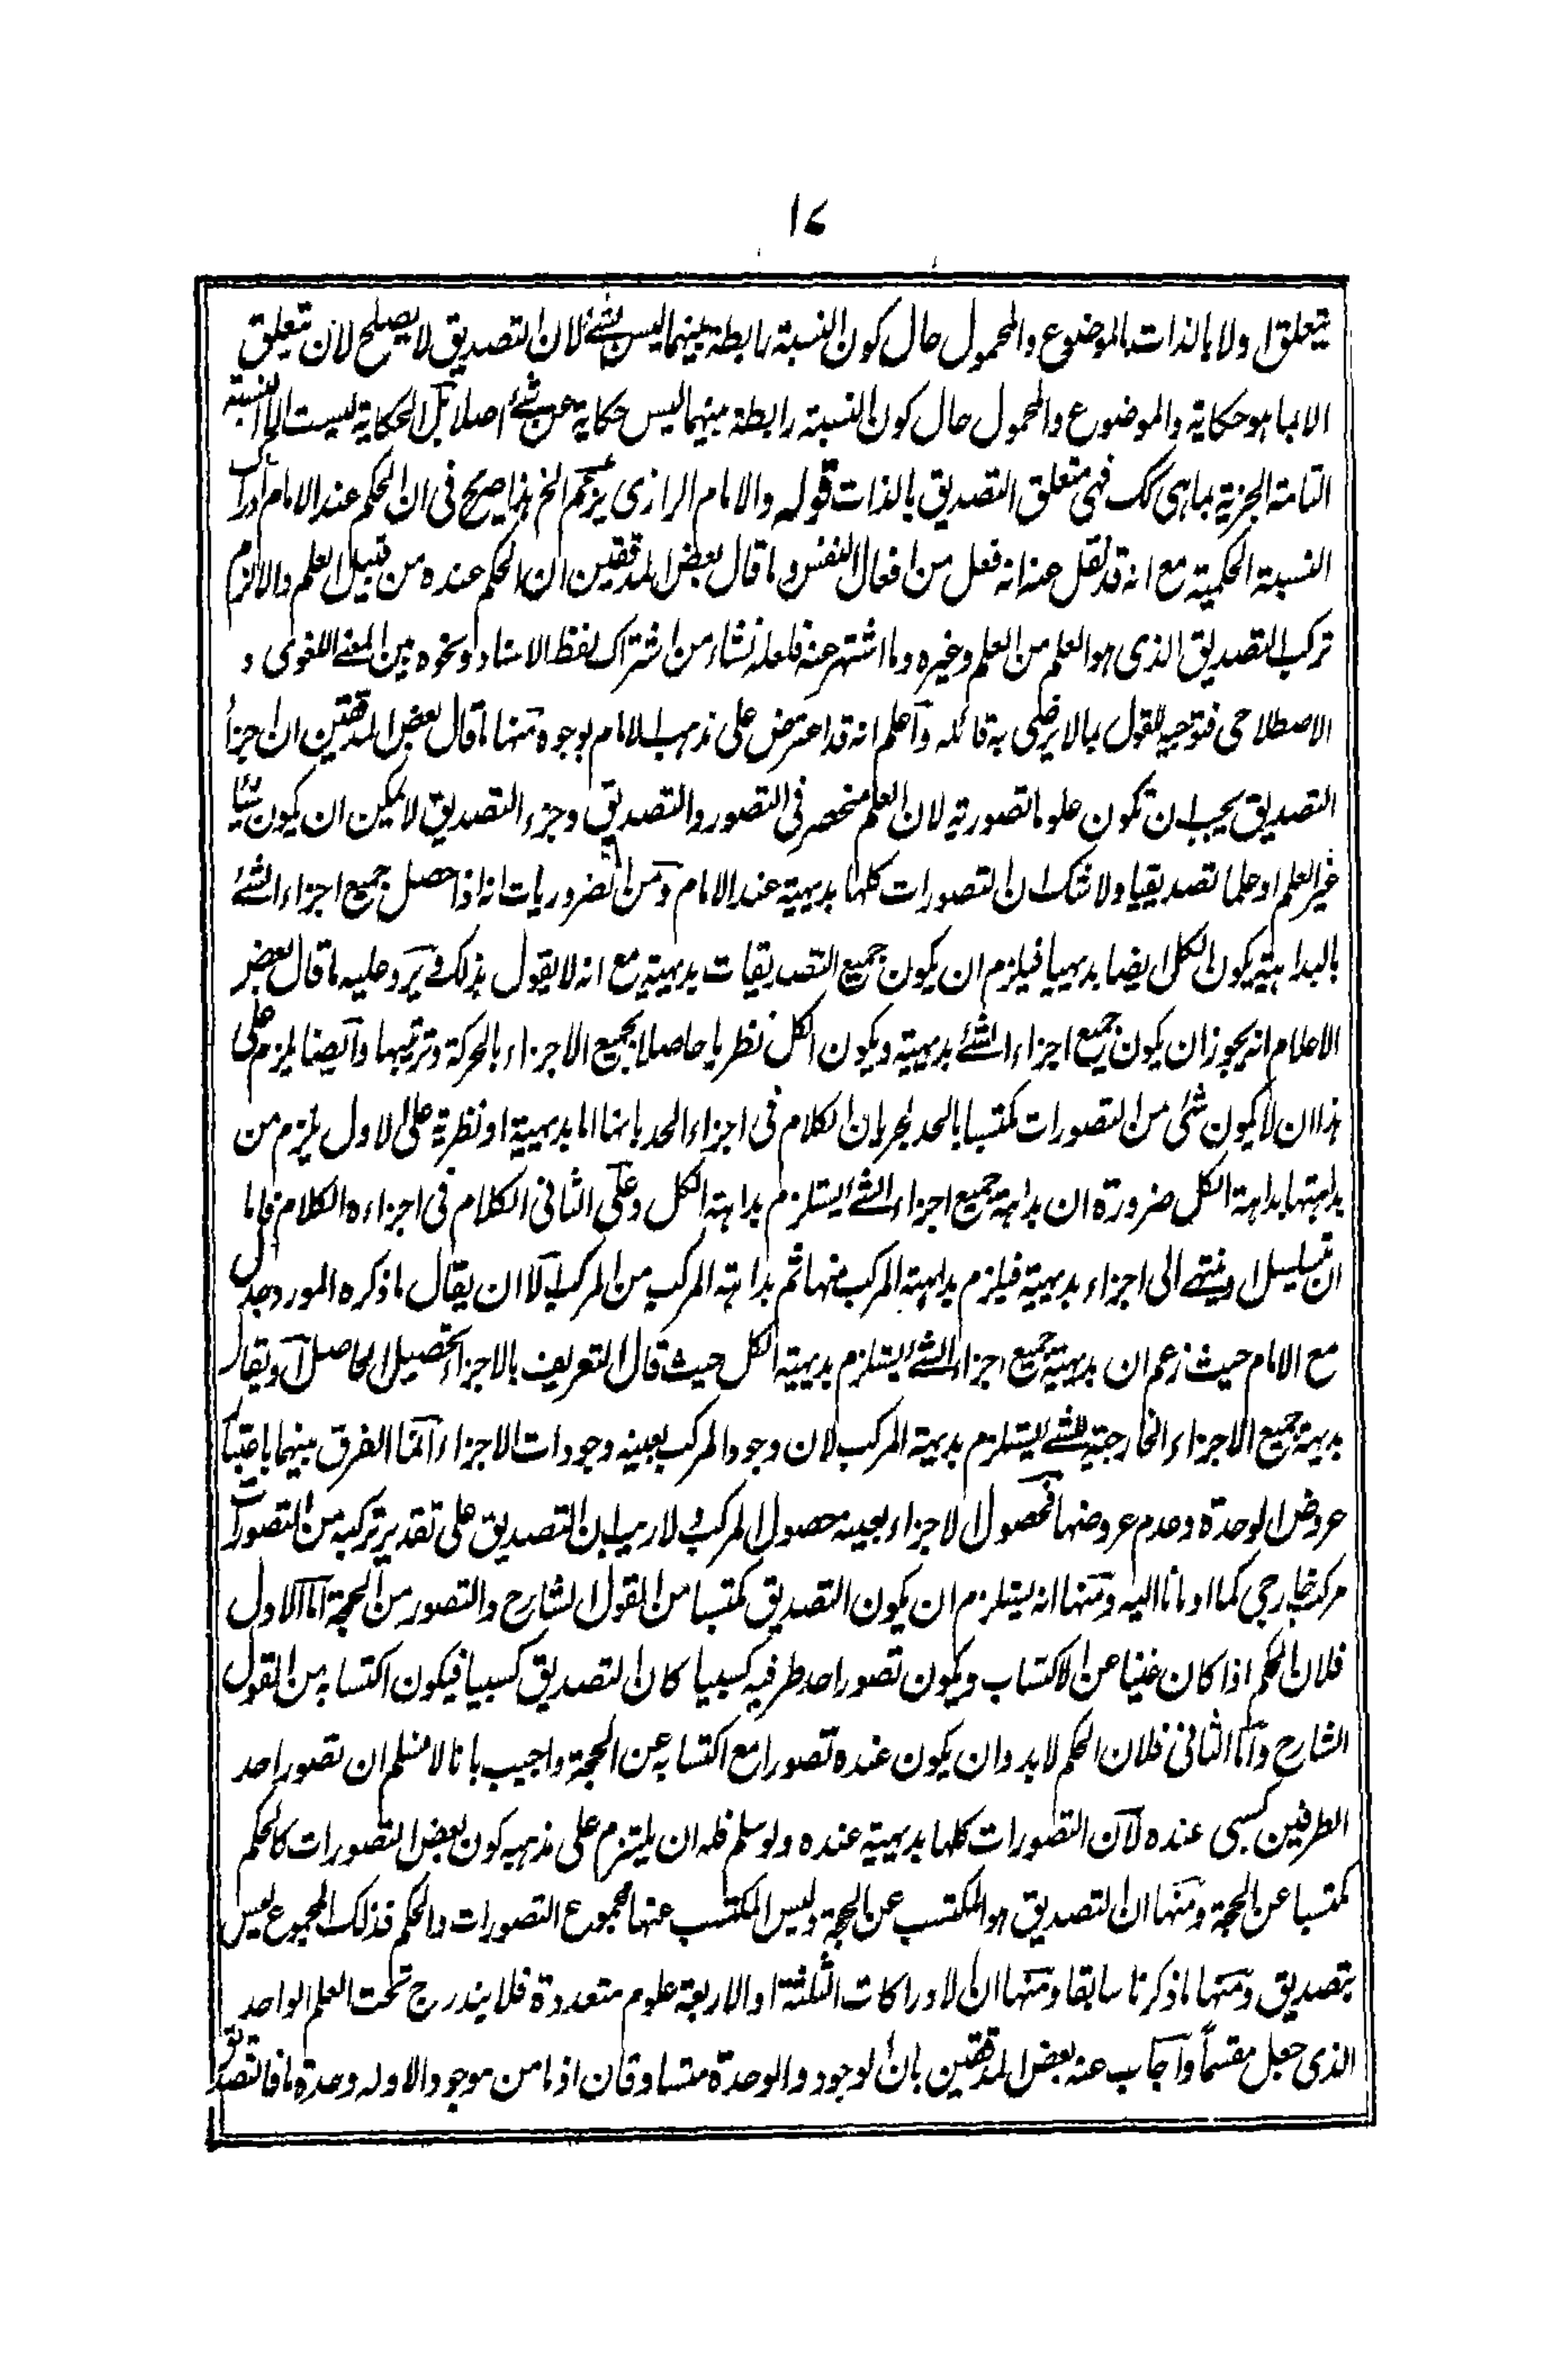 ١٧
يتعلق اولا بالذات بالموضوع والمحمول حال كون النسبة رابطة بينهما ليس بشئ لان التصديق لا يصلح لان يتعلق
الا بما هو حكاية والموضوع والمحمول حال كون النسبة رابطة بينهما ليس حكاية عن شئ اصلا بل الحكاية ليست الا النسبة
التامة الخبرية بما هى كك فهى متعلق التصديق بالذات قوله والامام الرازى يزعم الخ هذا صريح فى ان الحكم عند الامام ادراك
النسبة الحكمية مع انه قد نقل عنه انه فعل من افعال النفس وما قال بعض المدققين ان الحكم عنده من قبيل العلم والا لزم
تركب التصديق الذى هو العلم من العلم وغيره وما اشتهر عنه فلعله نشاء من اشتراك لفظ الاسناد ونحوه بين المعنى اللغوى و
الاصطلاحى فتوجيه للقول بما لا يرضى به قائله واعلم انه قد اعترض على مذهب الامام بوجوه منها ما قال بعض المدققين ان اجزاء
التصديق يجب ان تكون علوما تصورية لان العلم منحصر فى التصور والتصديق وجزء التصديق لا يمكن ان يكون شيئا
غير العلم او علما تصديقيا ولا شك ان التصورات كلها بديهية عند الامام ومن الضروريات انه اذا حصل جميع اجزاء الشئ
بالبداهية يكون الكل ايضا بديهيا فيلزم ان يكون جميع التصديقات بديهية مع انه لا يقول بذلك ويرد عليه ما قال بعض
الاعلام انه يجوز ان يكون جميع اجزاء الشئ بديهية ويكون الكل نظريا حاصلا بجميع الاجزاء بالحركة وترتيبها وايضا يلزم على
هذا ان لا يكون شئ من التصورات مكتسبا بالحد لجريان الكلام فى اجزاء الحد بانها اما بديهية او نظرية على الاول يلزم من
بداهتها بداهة الكل ضرورة ان بداهة جميع اجزاء الشئ يستلزم بداهة الكل وعلى الثانى الكلام فى اجزاءه الكلام فاما
ان يتسلسل او ينتهى الى اجزاء بديهية فيلزم بداهة المركب منها ثم بداهة المركب من المركب الا ان يقال ما ذكره المورد جدل
مع الامام حيث زعم ان بديهية جميع اجزاء الشئ يستلزم بديهية الكل حيث قال التعريف بالاجزاء تحصيل الحاصل او يقال
بديهة جميع الاجزاء الخارجية للشئ يستلزم بديهة المركب لان وجود المركب بعينه وجودات الاجزاء انما الفرق بينهما باعتبار
عروض الوحدة وعدم عروضها فحصول الاجزاء بعينه حصول المركب ولا ريب ان التصديق على تقدير تركبه من التصورات
مركب خارجى كما اومأنا اليه ومنها انه يستلزم ان يكون التصديق مكتسبا من القول الشارح والتصور من الحجة اما الاول
فلان الحكم اذا كان غنيا عن الاكتساب ويكون تصور احد طرفيه كسبيا كان التصديق كسبيا فيكون اكتسابه من القول
الشارح واما الثانى فلان الحكم لابد وان يكون عنده تصورا مع اكتسابه عن الحجة واجيب بانا لا نسلم ان تصور احد
الطرفين كسبى عنده لان التصورات كلها بديهية عنده ولو سلم فله ان يلتزم على مذهبه كون بعض التصورات كالحكم
مكتسبا عن الحجة ومنها ان التصديق هو المكتسب عن الحجة وليس المكتسب عنها مجموع التصورات والحكم فذلك المجموع ليس
بتصديق ومنها ما ذكرنا سابقا ومنها ان الادراكات الثلثة او الاربعة علوم متعددة فلا يندرج تحت العلم الواحد
الذى جعل مقسما واجاب عنه بعض المدققين بان الوجود والوحدة متساوقان اذ ما من موجود الا وله وحدة ما فالتصديق